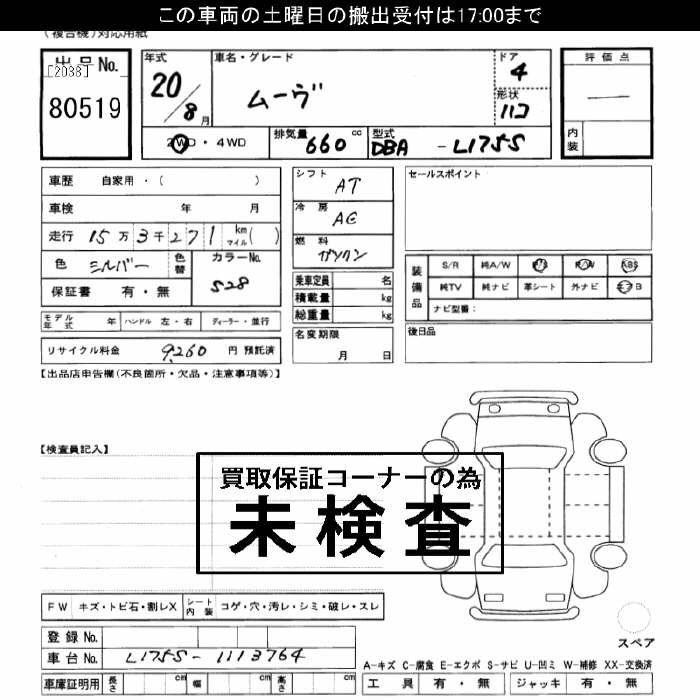 この車両の土曜日の搬出受付は17:00まで
(複合機)対応用紙
出品No. [2038] 80519
年式 20/8月
車名・グレード ムーヴ
ドア 4
形状 ハコ
評価点 —
内装
2WD・4WD
排気量 660 cc
型式 DBA - L175S
車歴 自家用・( )
車検 年 月
走行 15万3千271 km マイル( )
色 シルバー 色替 カラーNo. S28
保証書 有・無
モデル年式 年 ハンドル 左・右 ディーラー・並行
リサイクル料金 9,260 円 預託済
シフト AT
冷房 AC
燃料 ガソリン
乗車定員 名
積載量 kg
総重量 kg
名変期限 月 日
セールスポイント
装備品 S/R 純A/W P/S P/W ABS
純TV 純ナビ 革シート 外ナビ エアB
ナビ型番:
後日品
【出品店申告欄(不良箇所・欠品・注意事項等)】
【検査員記入】
買取保証コーナーの為
未検査
FW キズ・トビ石・割レX シート内装 コゲ・穴・汚レ・シミ・破レ・スレ
登録No.
車台No. L175S-1113764
車庫証明用 長さ cm 幅 cm 高さ cm
スペア
A-キズ C-腐食 E-エクボ S-サビ U-凹ミ W-補修 XX-交換済
工具 有・無 ジャッキ 有・無